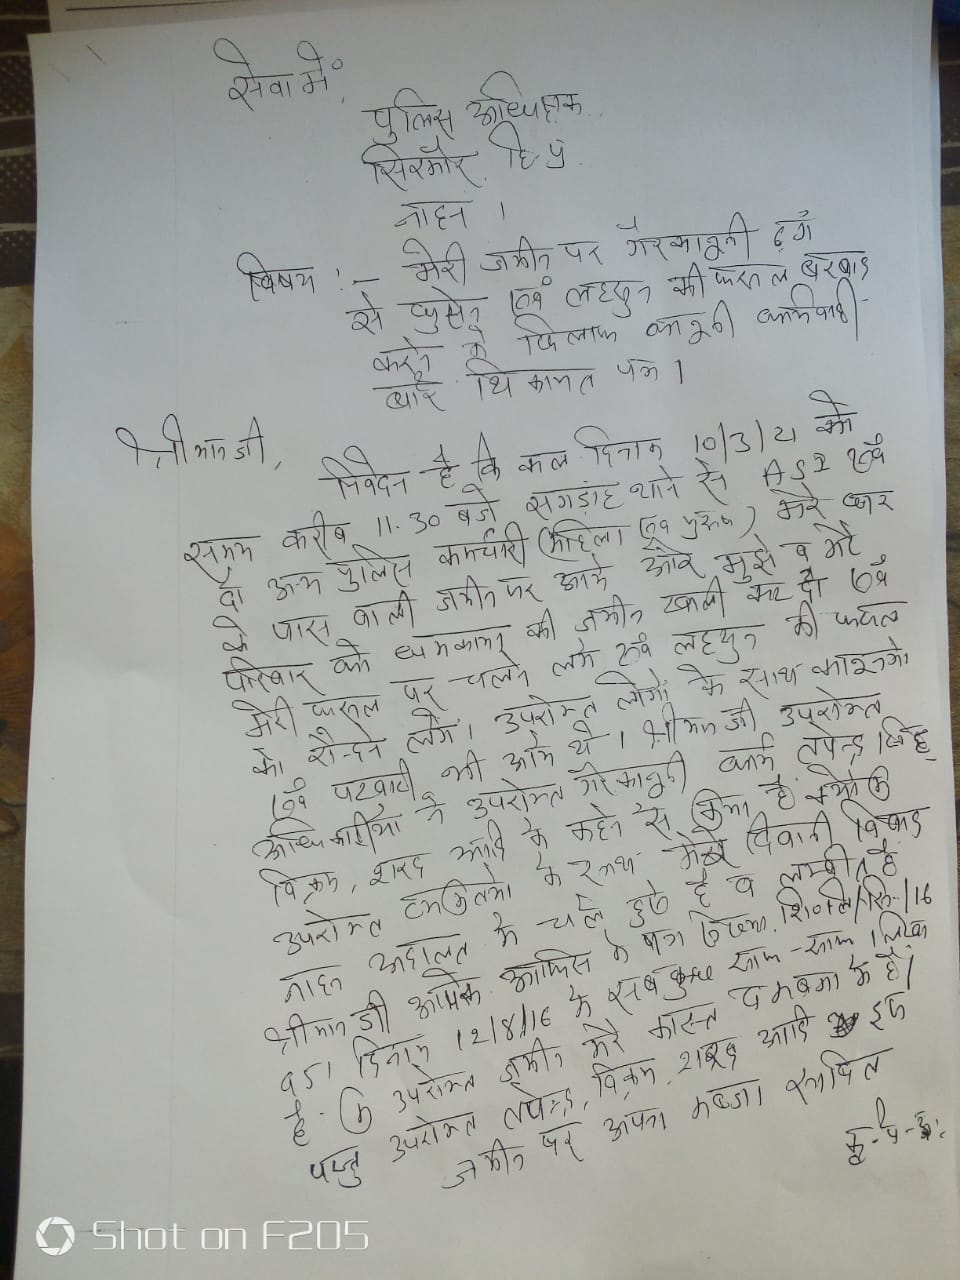 सेवा में,
पुलिस अधिक्षक
सिरमौर, हि.प्र.
नाहन ।
विषय :- मेरी जमीन पर गैरकानूनी ढ़ंग
से घुसने एवं लहसुन की फसल बरबाद
करने के खिलाफ कानूनी कार्यवाही
बारे शिकायत पत्र ।
श्रीमान जी,
निवेदन है कि कल दिनांक 10/3/21 को
समय करीब 11.30 बजे संगड़ाह थाने से ASI एवं
दो अन्य पुलिस कर्मचारी (महिला एवं पुरुष) मेरे घर
के पास वाली जमीन पर आये और मुझे व मेरे
परिवार को धमकाकर की जमीन खाली कर दो एवं
मेरी फसल पर चलने लगे एवं लहसुन की फसल
को रौन्दने लगे। उपरोक्त लोगों के साथ कानूनगो
एवं पटवारी भी आये थे। श्रीमान जी उपरोक्त
अधिकारीयों ने उपरोक्त गैरकानूनी कार्य तपेन्द्र सिंह,
विक्रम, शरद आदि के कहने से किया है क्योंकि
उपरोक्त व्यक्तियों के साथ मेरे दिवानी विवाद
नाहन अदालत में चले हुए है व लम्बीत है
श्रीमान जी आपके आफिस के पत्र /16
951 दिनांक 12/8/16 में सबकुछ साफ-साफ लिखा
है. कि उपरोक्त जमीन मेरे कास्त व कब्जा में है।
परन्तु उपरोक्त तपेन्द्र, विक्रम, शरद आदि इस
जमीन पर अपना कब्जा स्थापित
कृ-पृ-उ.
Shot on F205